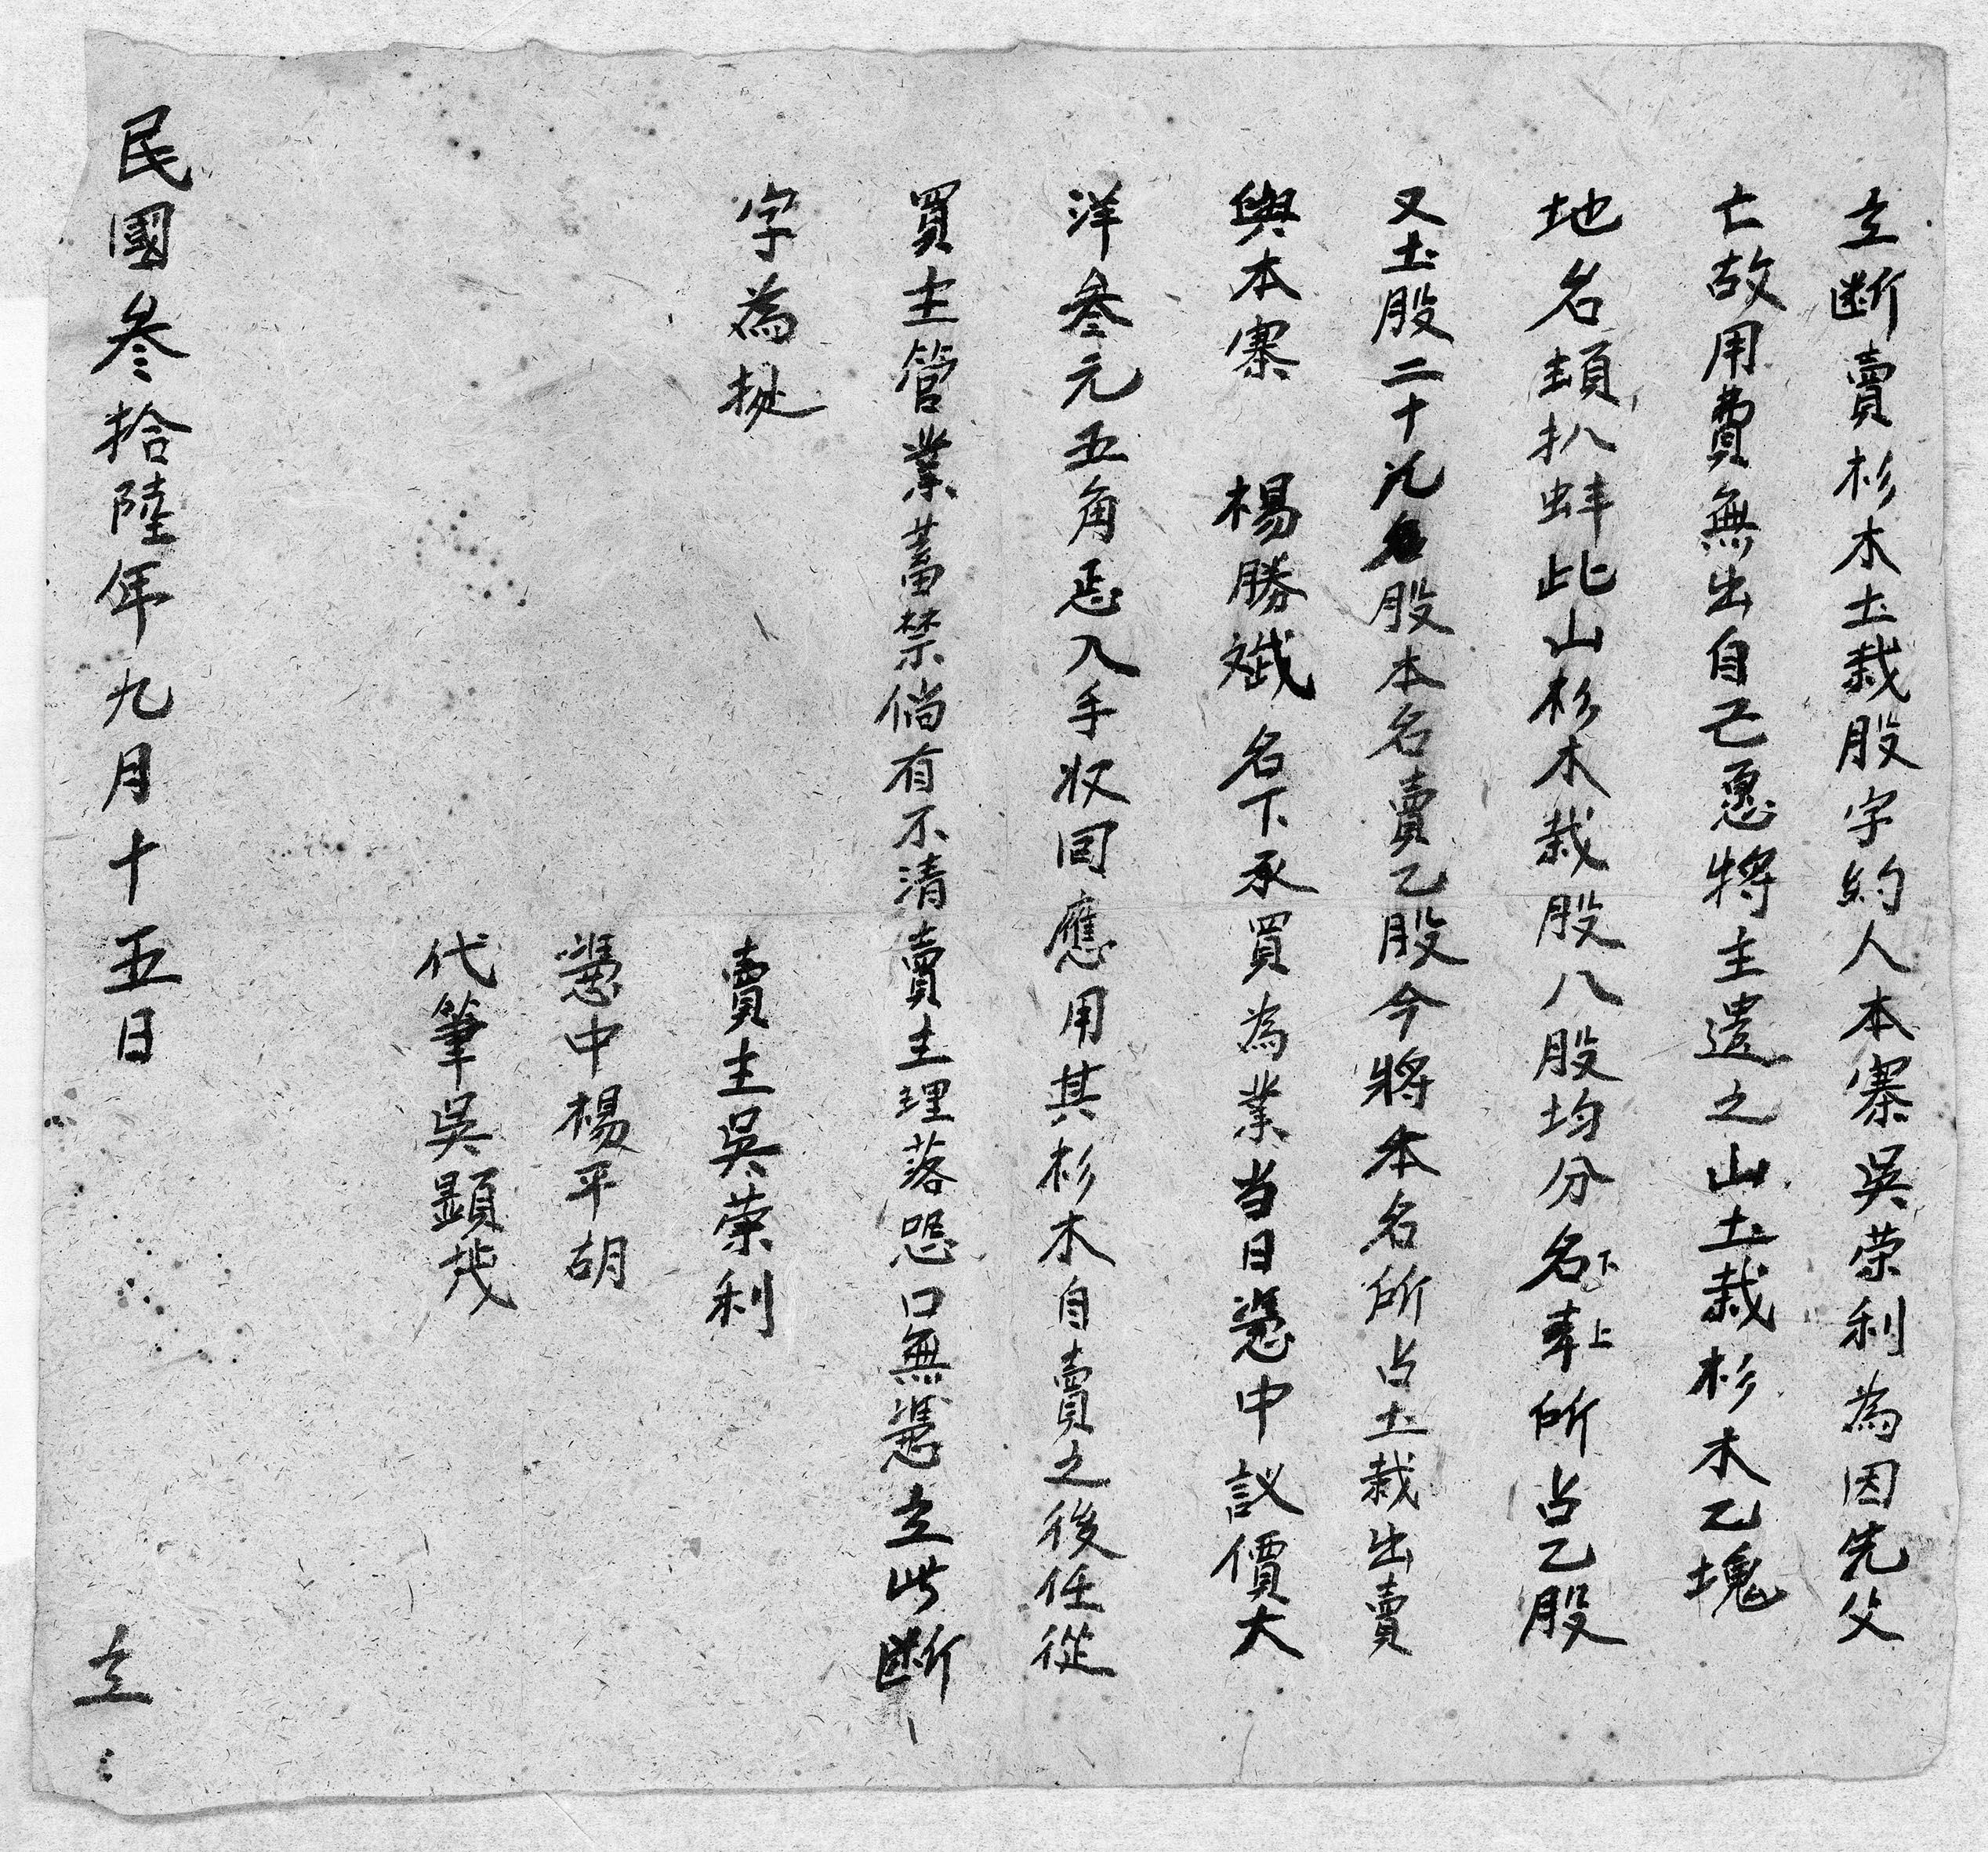 立断賣杉木土栽股字約人本寨吳荣利為因先父
亡故用費無出自己愿將主遺之山土栽杉木乙塊
地名頭扒蚌此山杉木栽股八股均分名下上所占乙股
又土股二十九股本名賣乙股今將本名所占土栽出賣
與本寨 楊勝 名下承買為業当日憑中議價大
洋叁元五角悉入手收回應用其杉木自賣之後任從
買主管業蓄禁倘有不清賣主理落恐口無憑立此断
字為㨿
賣主吳荣利
憑中楊平胡
代筆吳顕茂
民國叁拾陸年九月十五日 立